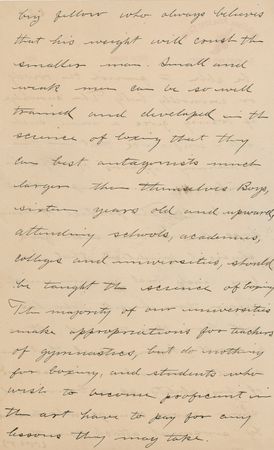 big fellow who always believes
that his weight will crush the
smaller man. Small and
weak men can be so well
trained and developed in the
science of boxing that they
can best antagonists much
larger than themselves Boys,
sixteen years old and upward,
attending schools, academies,
colleges and universities, should
be taught the science of boxing
The majority of our universities
make appropriations for teachers
of gymnastics, but do nothing
for boxing, and students who
wish to become proficient in
the art have to pay for any
lessons they may take.